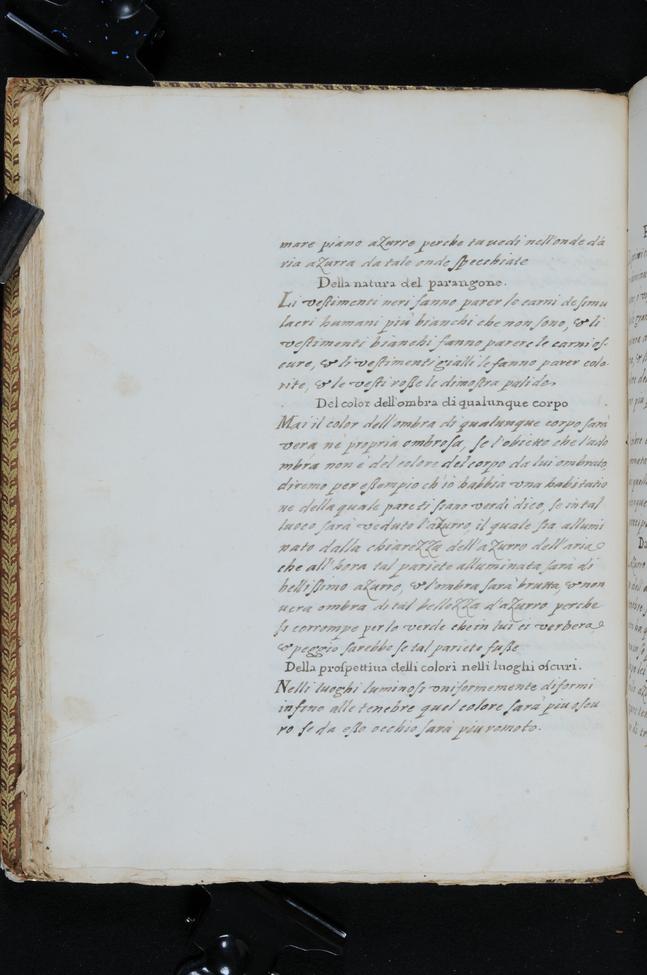 mare piano aZurro perche tu uedi nell'onde da
ria aZurra da tale onde specchiate
Della natura del parangone.
Li vestimenti neri fanno parer le carni de simu
lacri humani più bianchi che non sono, & li
vestimenti bianchi fanno parere le carni os-
cure, & li vestimenti gialli le fanno parer colo-
rite, & le vesti rosse le dimostra palide.
Del color dell'ombra di qualunque corpo
Mai il color dell'ombra di qualunque corpo sarà
vera nè propria ombrosa, se l'obietto che l'ado
mbra non è del colore del corpo da lui ombrato,
diremo per essempio ch'io habbia vna habitatio
ne della quale pareti siano verdi dico, se in tal
luoco sarà veduto l'aZurro, il quale sia allumi
nato dalla chiareZZa dell'aZurro dell'aria
che all'hora tal pariete alluminata sarà di
bellissimo aZurro, & l'ombra sarà brutta, & non
uera ombra di tal belleZZa d'aZurro perche
si corrompe per lo verde che in lui ci verbera,
& peggio sarebbe se tal pariete fusse
Della prospettiua delli colori nelli luoghi oscuri.
Nelli luoghi luminosi vniformemente diformi
infino alle tenebre quel colore sarà piu oscu
ro se da esso occhio sarà piu romoto.